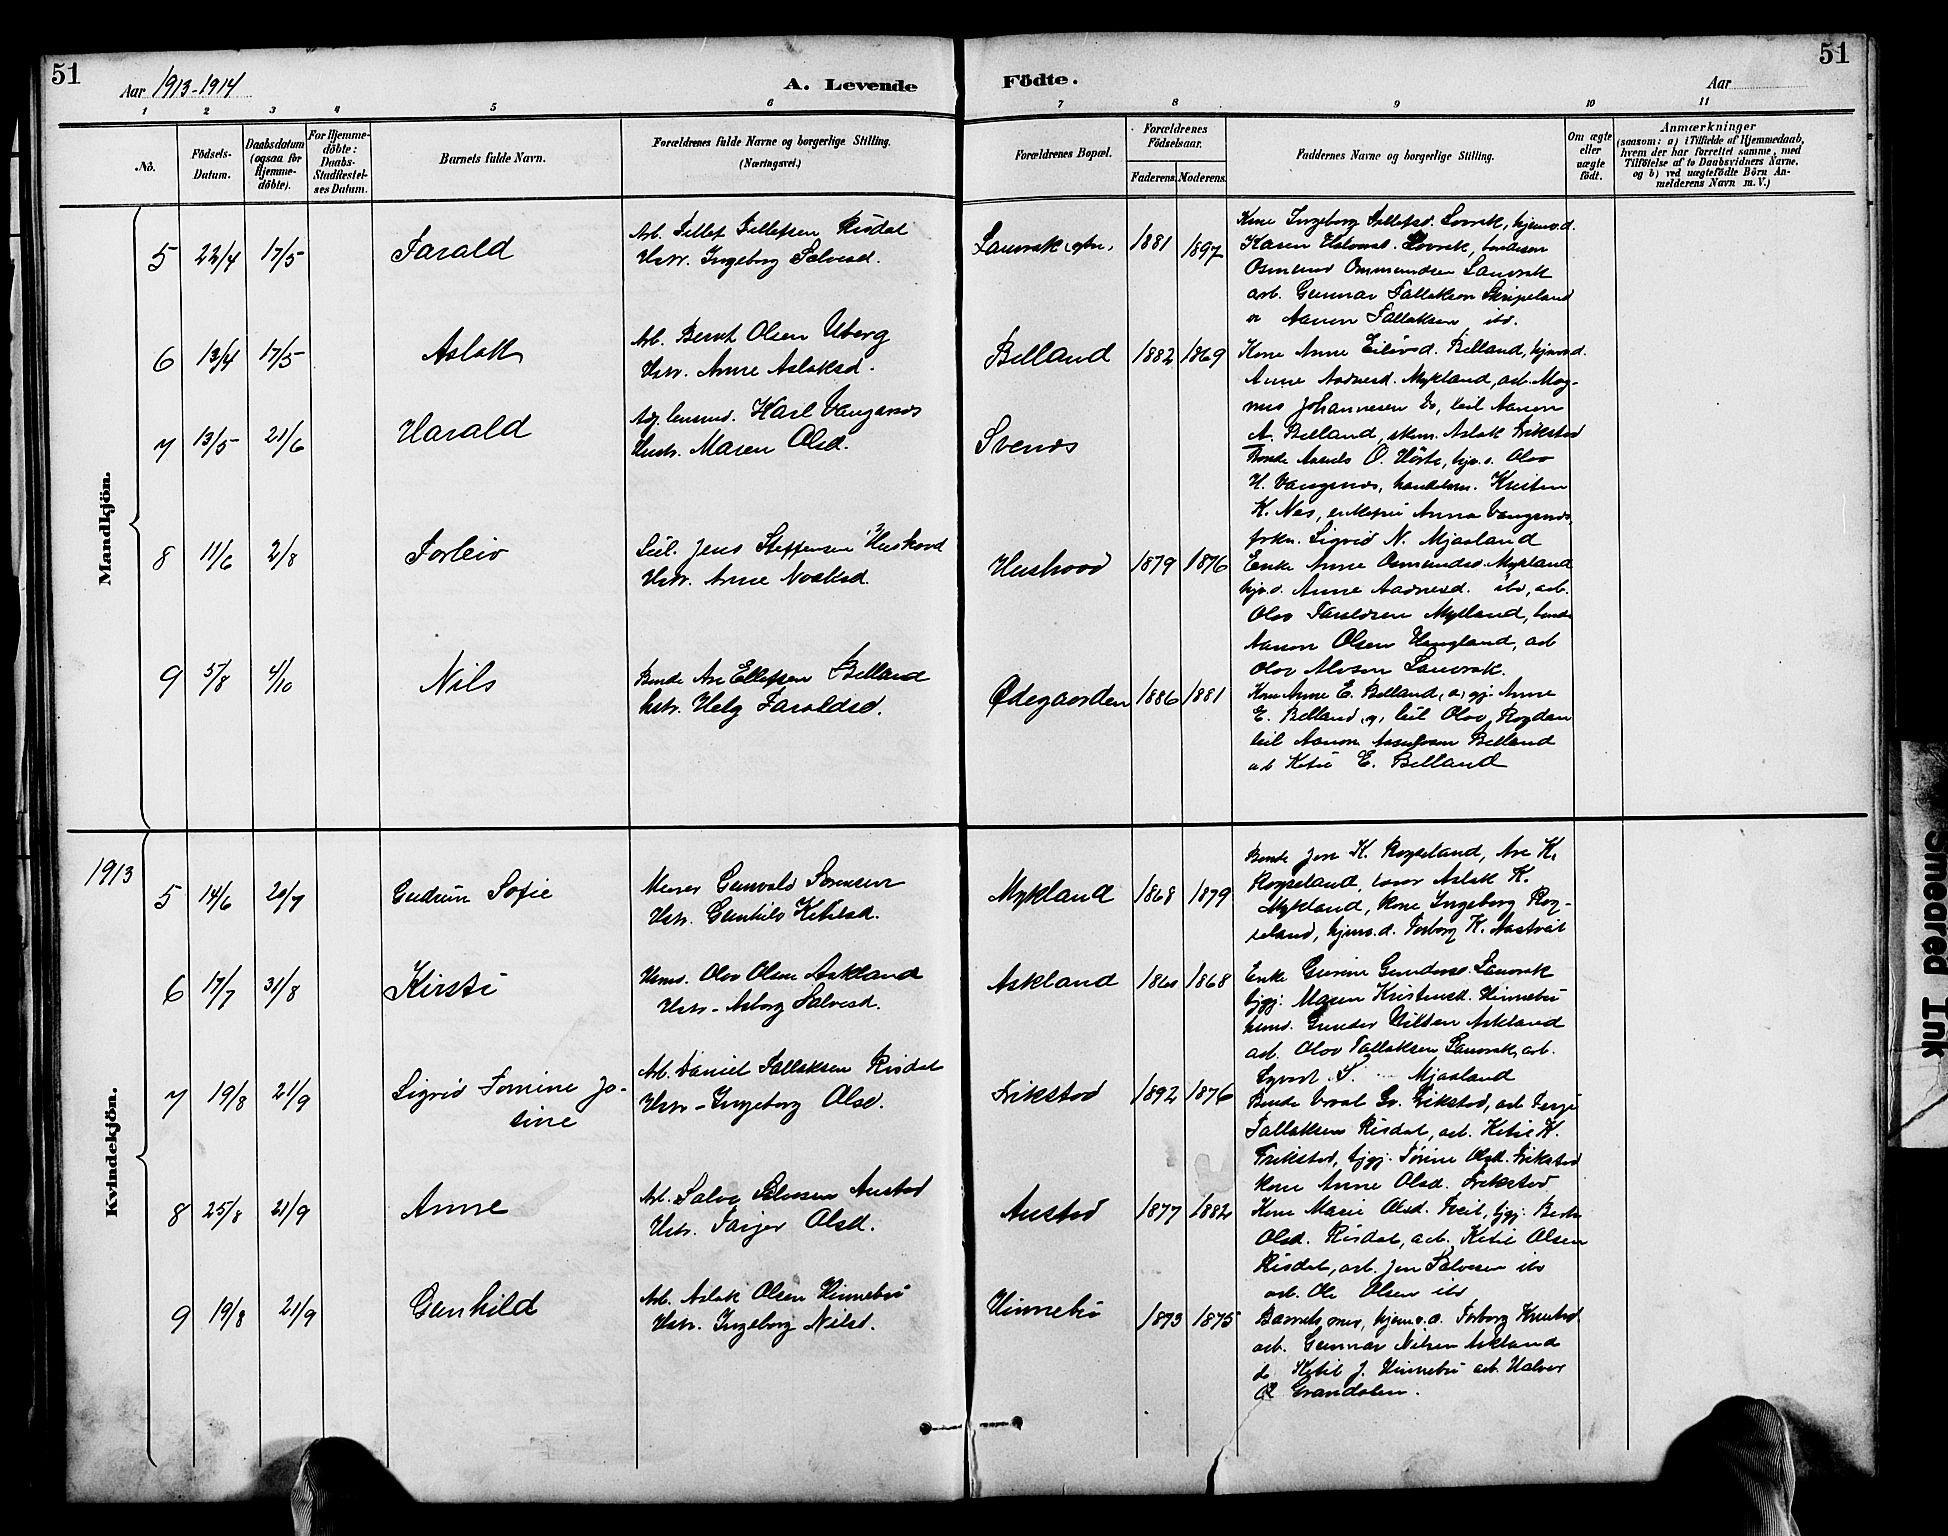 51
51
Aar 1913-1914
A. Levende Födte.
Aar
1 2 3 4 5 6 7 8 9 10 11
No.
Födsels-
Datum.
Daabsdatum
(ogsaa for
Hjemme-
döbte).
For Hjemme-
döbte:
Daabs-
Stadfæstel-
ses Datum.
Barnets fulde Navn.
Forældrenes fulde Navne og borgerlige Stilling.
(Næringsvei.)
Forældrenes Bopæl.
Forældrenes
Födselsaar.
Faderens. Moderens.
Faddernes Navne og borgerlige Stilling.
Om ægte
eller
uægte
födt.
Anmærkninger
(saasom: a) i Tilfælde af Hjemmedaab,
hvem der har forrettet samme, med
Tilföielse af to Daabsvidners Navne,
og b) ved uægtefödte Börn An-
melderens Navn m. V.)
Mandkjön.
5 22/4 17/5 Tarald
Arb. Tellef Tellefsen Risdal
Hstr. Ingeborg Salvesd.
1881 1897
Kone Ingeborg Tellefsd. hjemv.d.
Karen
Osmund Ommundsen Lauvrak
arb. Gunnar Tallaksen Skripeland
Aanen Tallaksen ibd.
6 13/4 17/5 Aslak
Arb. Bernt Olsen Uberg
Hstr. Anne Aslaksd.
Belland 1882 1869
Kone Anne Eilivsd. Belland, hjemv.d.
Anne Aadnesd. Mykland, arb. Mag-
nus Johannesen do, Aanon
A. Belland, Aslak Frikstad
7 13/5 21/6 Harald
Karl Vangsnes
Hustr. Maren Olsd.
Svenes
Bonde O. Olav
H. Vangsnes, handelsm. Kristen
K. Nes, enkefru Anna Vangsnes,
frkn. Sigrid N. Mjaaland
8 11/6 2/8 Torleiv
Jens Steffensen Hushovd
Hstr. Anne Noaksd.
Hushovd 1879 1876
Enke Anne Osmundsd. Mykland
Anne Aadnesd. ibd, arb.
Olav Taraldsen Mykland, bonde
Aanon Olsen Haugland, arb
Olav Alvsen Lauvrak.
9 5/8 4/10 Nils
Bonde Are Ellefsen Belland
hstr. Helg Taraldsd.
Ødegaarden 1886 1881
Kone Anne E. Belland, Anne
E. Belland, Olav
Aanon Belland
arb Ketil E. Belland
1913
Kvindekjön.
5 14/6 20/7 Gudrun Sofie
Murer Gunvald Sørensen
Hstr. Gunhild Ketilsd.
Mykland 1868 1879
Bonde Jon K. Røyseland, Are K.
Røyseland, Aslak K.
Mykland, kone Ingeborg Røy-
seland, hjemv.d. Torborg K. Aastveit
6 17/7 31/8 Kirsti
Olav Olsen Askland
Hstr. Asborg Salvesd.
Askland 1868
Enke Gurine Lauvrak
tjgj. Maren Kristensd. Hinnebu
Gunder Nilsen Askland
arb. Olav Tallaksen Lauvrak, arb.
Mjaaland
7 19/8 21/9 Sigrid Tomine Jo-
sine
Arb. Daniel Tallaksen Risdal
Hstr. Ingeborg Olsd.
Frikstad 1892 1876
Bonde Frikstad, arb
Tallaksen Risdal, arb. Ketil K.
Frikstad, tjgj. Olsd. Frikstad
kone Anne Olsd. Frikstad
8 25/8 21/9 Anne
Arb. Salve Salvesen Austad
Hstr. Tarjer Olsd.
Austad 1877 1882
Kone Marie Olsd. tjgj.
Olsd. Risdal, arb. Ketil Olsen
Risdal, arb. Jon Salvesen ibd
arb. Ole Olsen ibd
9 19/8 21/9 Gunhild
Arb. Aslak Olsen Hinnebu
Hstr. Ingeborg Nilsd.
Hinnebu 1873 1875
Barnets mor, hjemv.d. Torborg Knutsd.
arb. Gunnar Nilsen Askland
do Ketil J. Hinnebu arb. Halvor
O. Grandalen.
Smeared Ink